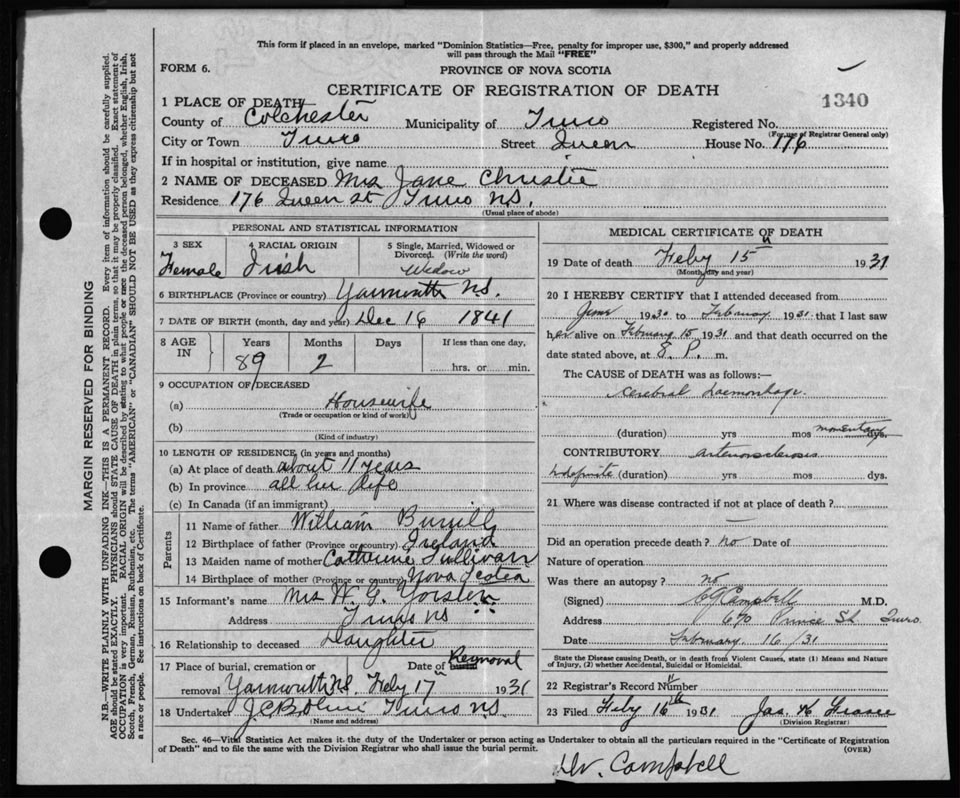 This form if placed in an envelope, marked "Dominion Statistics—Free, penalty for improper use, $300," and properly addressed
will pass through the Mail "FREE"
FORM 6.
PROVINCE OF NOVA SCOTIA
CERTIFICATE OF REGISTRATION OF DEATH
1340
1 PLACE OF DEATH
County of Colchester Municipality of Truro Registered No.
(For use of Registrar General only)
City or Town Truro Street Queen House No. 176
If in hospital or institution, give name
2 NAME OF DECEASED Mrs Jane Christie
Residence 176 Queen st Truro N.S.
(Usual place of abode)
PERSONAL AND STATISTICAL INFORMATION
3 SEX Female
4 RACIAL ORIGIN Irish
5 Single, Married, Widowed or Divorced. (Write the word)
Widow
6 BIRTHPLACE (Province or country) Yarmouth N.S.
7 DATE OF BIRTH (month, day and year) Dec 16 1841
8 AGE IN Years Months Days If less than one day,
89 2 hrs. or min.
9 OCCUPATION OF DECEASED
(a) Housewife
(Trade or occupation or kind of work)
(b)
(Kind of industry)
10 LENGTH OF RESIDENCE (in years and months)
(a) At place of death about 11 years
(b) In province all her life
(c) In Canada (if an immigrant)
Parents
11 Name of father William
12 Birthplace of father (Province or country) Ireland
13 Maiden name of mother Catherine Sullivan
14 Birthplace of mother (Province or country) Nova Scotia
15 Informant's name Mrs W. G. Yorston
Address Truro NS
16 Relationship to deceased Daughter
17 Place of burial, cremation or Date of burial Removal
removal Yarmouth N.S. Feby 17 1931
18 Undertaker Truro N.S.
(Name and address)
MEDICAL CERTIFICATE OF DEATH
19 Date of death Feby 15 1931
(Month, day and year)
20 I HEREBY CERTIFY that I attended deceased from
1930 to February 1931 that I last saw
her alive on February 15 1931 and that death occurred on the
date stated above, at 8. P. m.
The CAUSE OF DEATH was as follows:—
Cerebral haemorrhage.
(duration) yrs mos momentary dys.
CONTRIBUTORY arteriosclerosis
Indefinite (duration) yrs. mos. dys.
21 Where was disease contracted if not at place of death?
Did an operation precede death? no Date of
Nature of operation
Was there an autopsy? no
(Signed) Campbell M.D.
Address 670 Prince St. Truro.
Date February 16/31
State the Disease causing Death, or in death from Violent Causes, state (1) Means and Nature
of Injury, (2) whether Accidental, Suicidal or Homicidal.
22 Registrar's Record Number
23 Filed Feby 16th 1931 Jas. K. Fraser
(Division Registrar)
Sec. 46—Vital Statistics Act makes it the duty of the Undertaker or person acting as Undertaker to obtain all the particulars required in the "Certificate of Registration
of Death" and to file the same with the Division Registrar who shall issue the burial permit.
(OVER)
Dr. Campbell
MARGIN RESERVED FOR BINDING
N.B.—WRITE PLAINLY WITH UNFADING INK—THIS IS A PERMANENT RECORD. Every item of information should be carefully supplied.
AGE should be stated EXACTLY. PHYSICIANS should STATE CAUSE OF DEATH in plain terms, so that it may be properly classified. Exact statement of
OCCUPATION is very important. RACIAL ORIGIN will be described by stating to what people or race the deceased person belonged, whether English, Irish,
Scotch, French, German, Russian, Ruthenian, etc. The terms "AMERICAN" or "CANADIAN" SHOULD NOT BE USED as they express citizenship but not
a race or people. See instructions on back of Certificate.